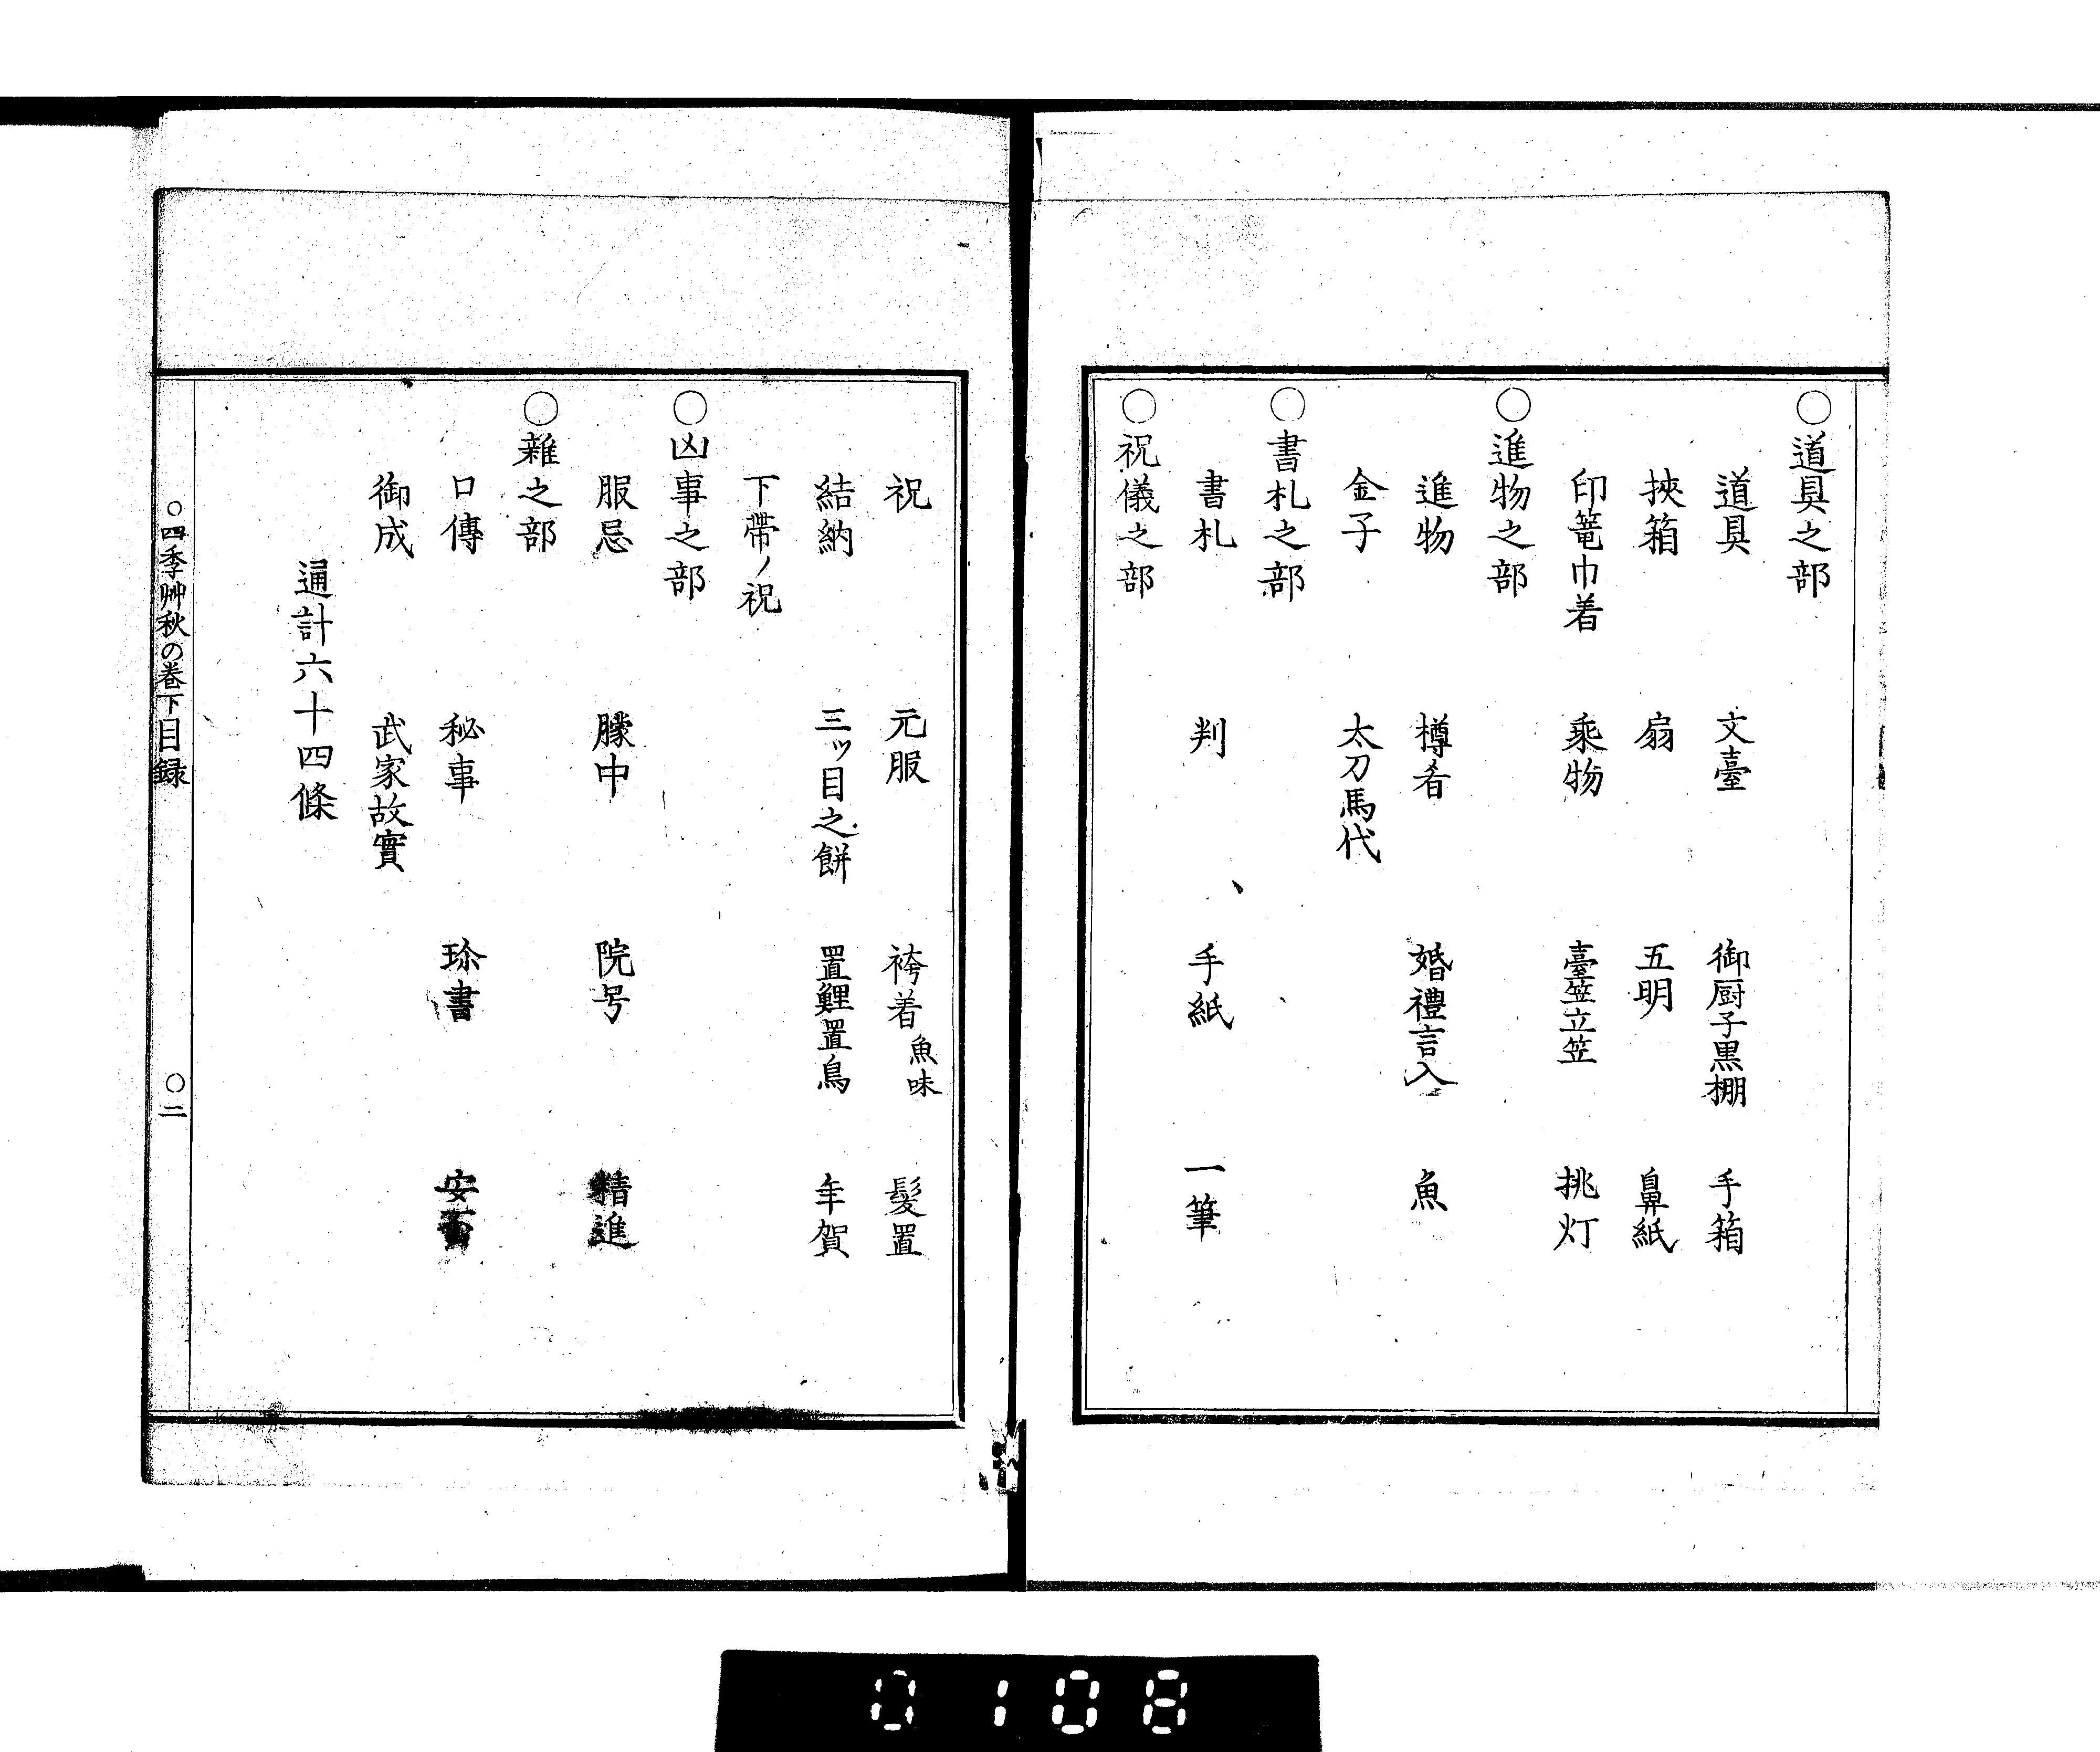 〇道具之部
道具　文臺　御厨子黒棚　手箱
挾箱　扇　五明　鼻紙
印篭巾着　乘物　臺笠立笠　挑灯
〇進物之部
進物　樽肴　婚禮言入　魚
金子　太刀馬代
〇書札之部
書札　判　手紙　一筆
〇祝儀之部
祝　元服　袴着魚味　髮置
結納　三ッ目之餅　置鯉置鳥　年賀
下帶ノ祝
〇凶事之部
服忌　朦中　院号　精進
〇雜之部
口傳　秘事　珎書　安
御成　武家故實
通計六十四條
〇四季艸秋の巻下目録　〇二
0108